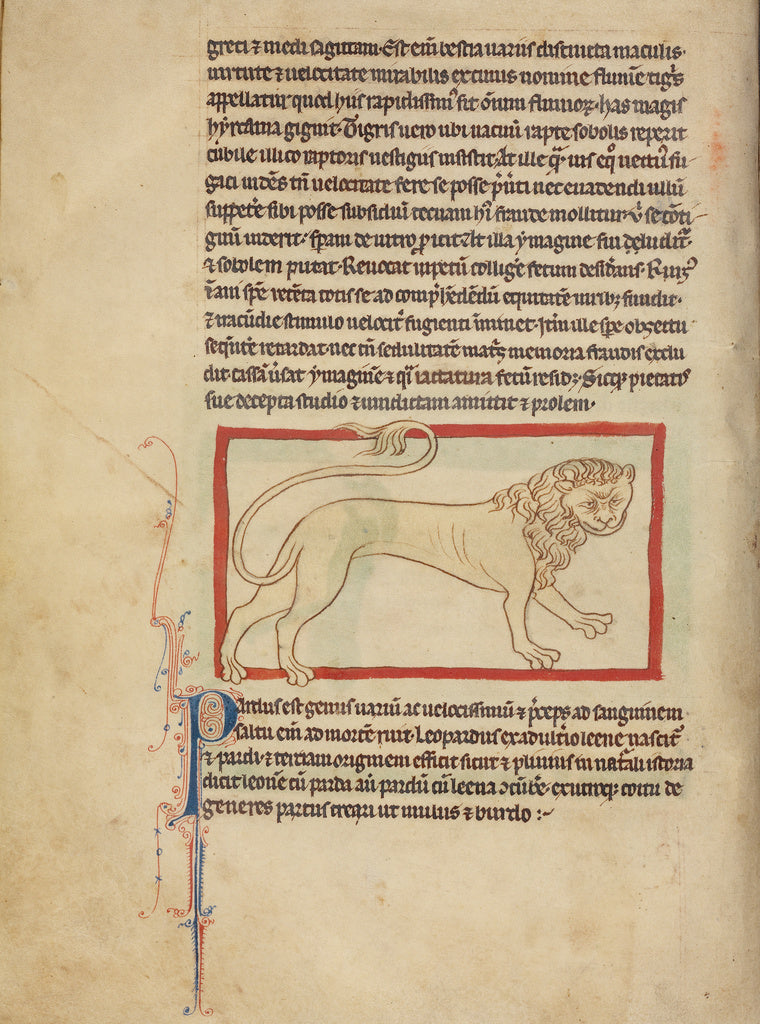 greci ⁊ medi sagittam· Est em̄ bestia uariis distincta maculis·
uirtute ⁊ uelocitate mirabilis ex cuius nomine flumē tigͥs
appellatur quod hiis rapidissimꝰ sit om̄iū fluuioꝝ· has magis
hyrcania gignit· Tigris uero ubi uacuū rapte sobolis reperit
cubile illico raptoris uestigiis insistit· At ille qͣmuis eqͦ uectus fu
gaci uidēs tn̄ uelocitate fere se posse p̄uerti nec euadendi ullū
suppetͤe sibi posse subsidiū tecnam hͥ fraude mollitur· ū se cōti
guū uiderit· speram de uitro ꝓicit At illa ymagine sui deludit᷑·
⁊ sobolem putat· Reuocat inpetū colligͤe fetum desidͤans· Rursꝰ
īani spē retēta totis se ad comp̄hēdēdū equitatē uiribꝫ fundit·
⁊ iracūdie stimulo uelociꝰ fugienti īminet· Itͤū ille spe obiectu
seqͥntē retardat· nec tn̄ sedulitatē matͥs memoria fraudis exclu
dit· cassā ūsat ymaginē ⁊ qͣsi lactatura fetū residꝫ· Sicqꝫ pietatis
sue decepta studio ⁊ uindictam amittit ⁊ prolem·
Pardus est genus uariū ac uelocissimū ⁊ p̄ceps ad sanguinem
saltu em̄ ad mortē ruit· Leopardus ex adultͥo leene nascit᷑
⁊ pardi· ⁊ terciam originem efficit sicut ⁊ plinius in natͣali istoria
dicit leonē cū parda aut̄ pardū cū leena ↄcūbͤe· ex utroqꝫ coitu de
generes partus creari ut mulus ⁊ burdo :~